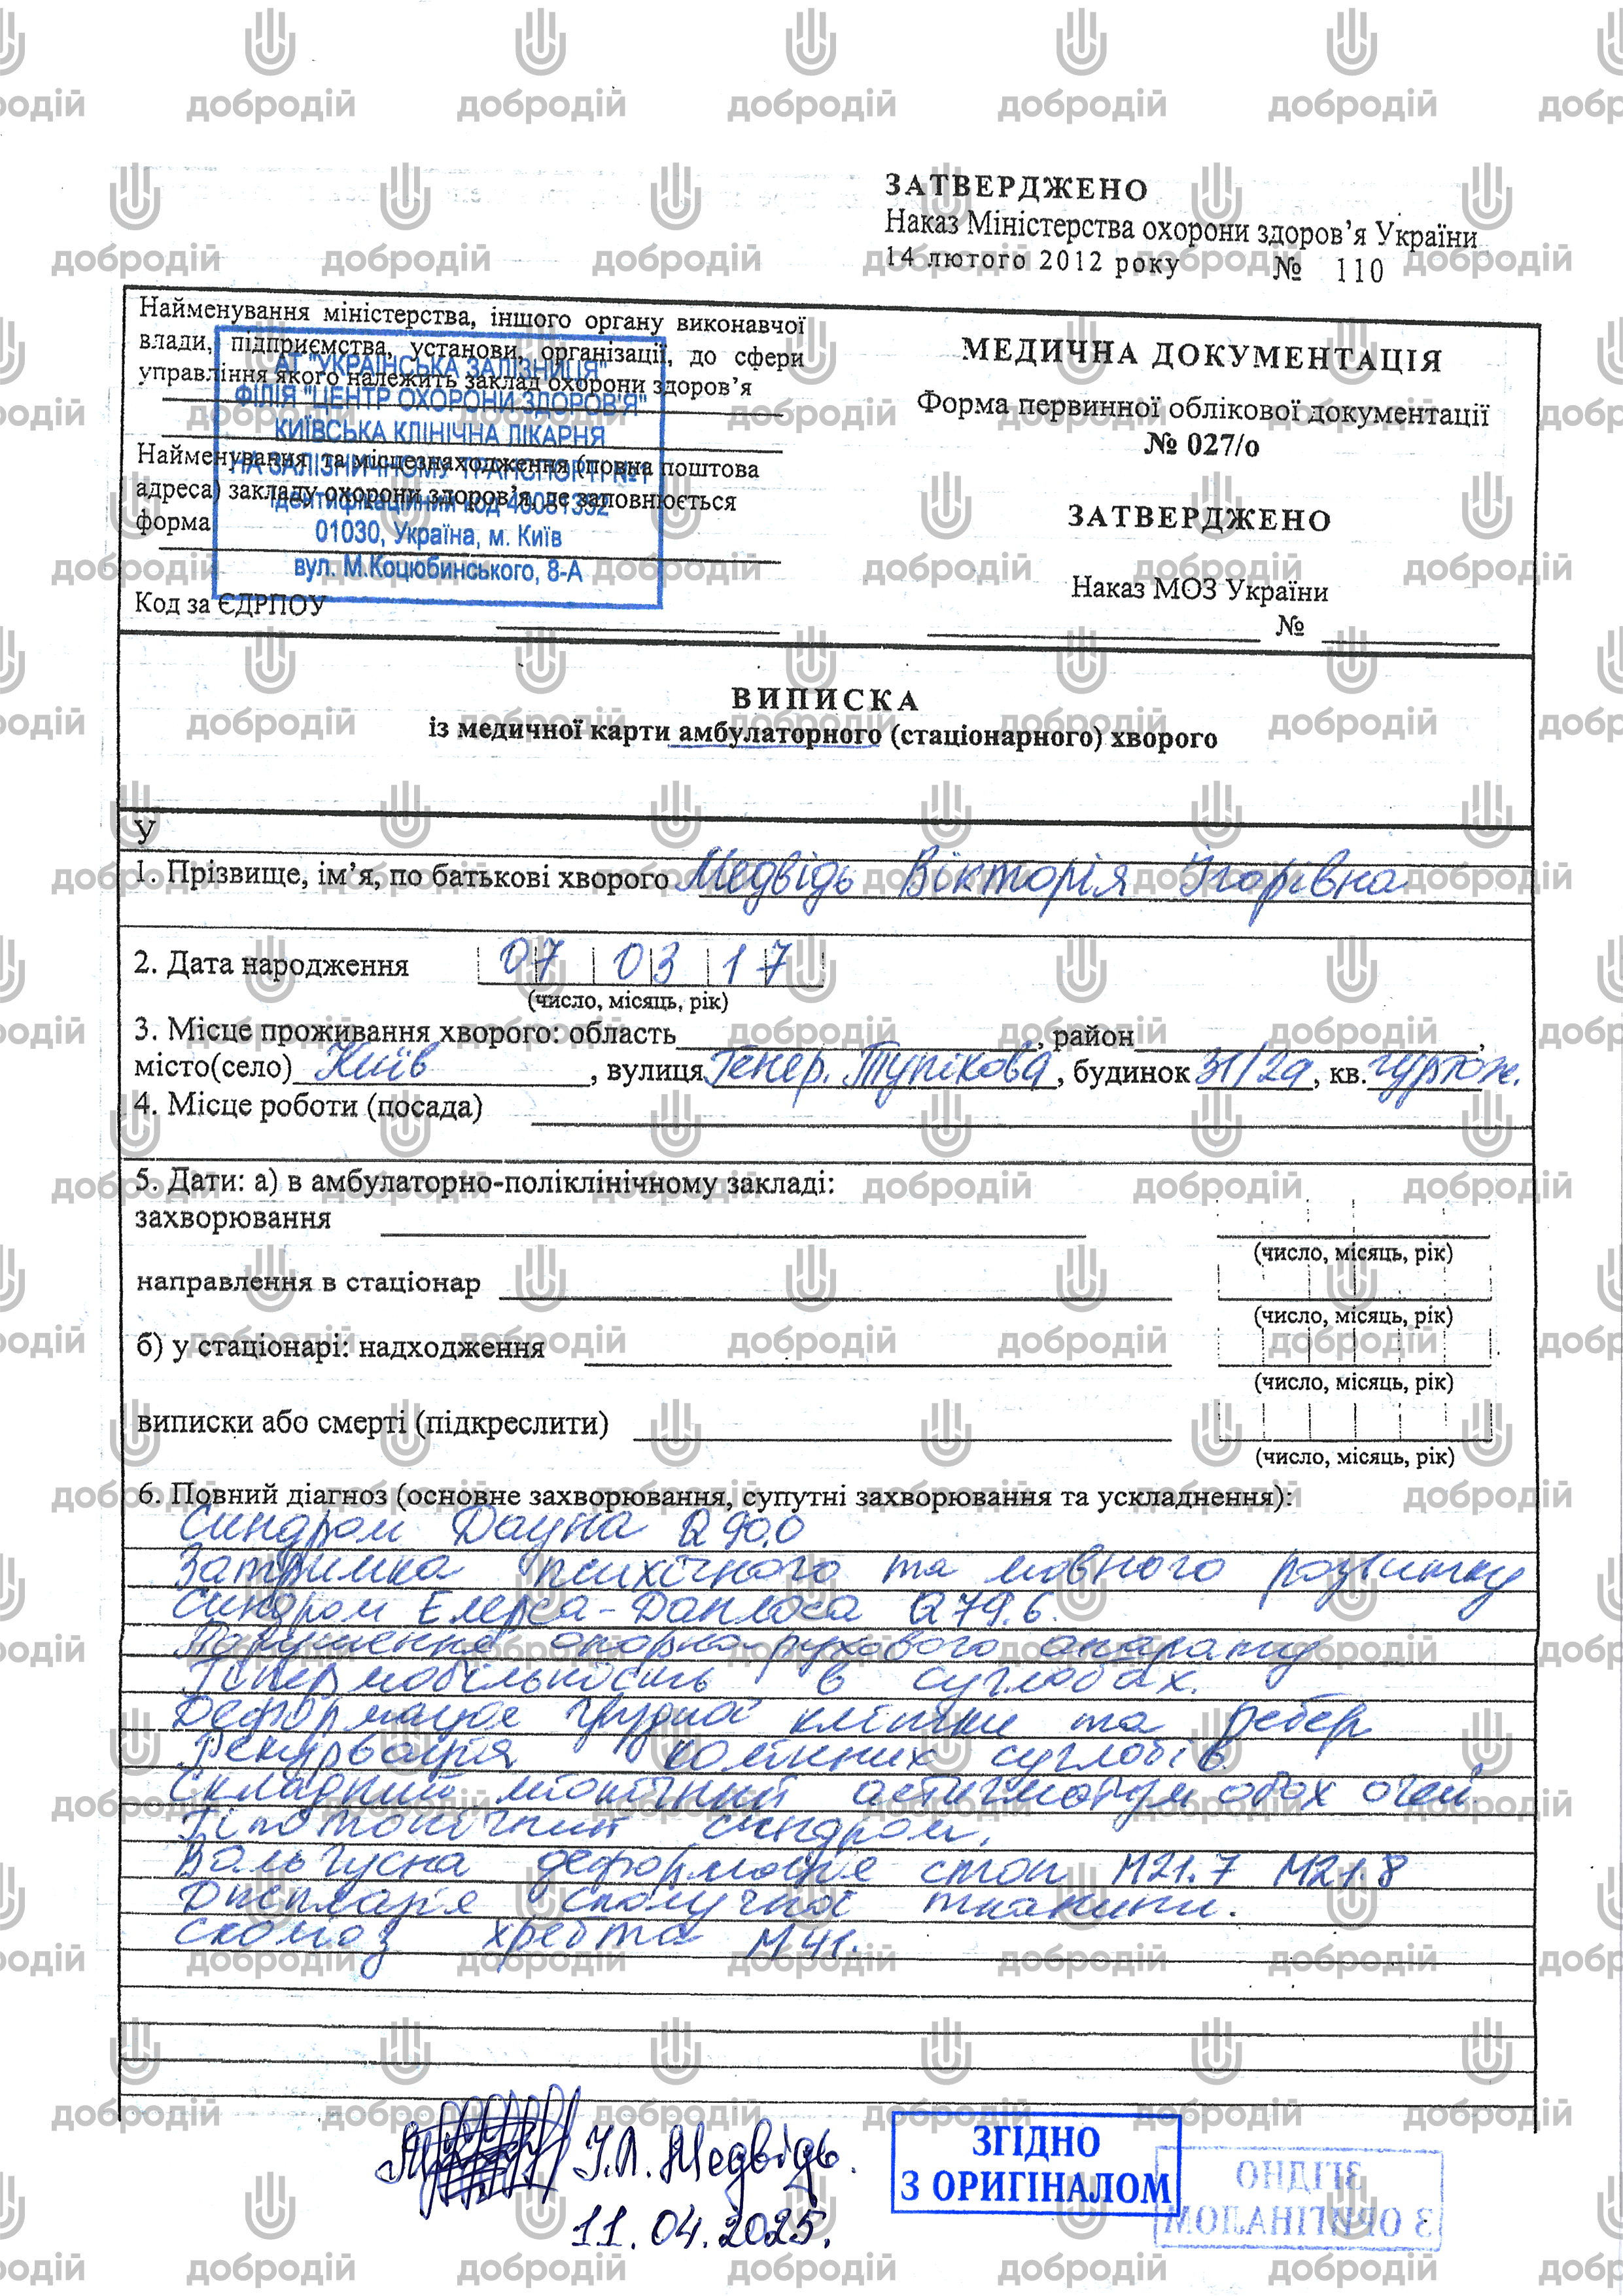 ЗАТВЕРДЖЕНО
Наказ Міністерства охорони здоров’я України
14 лютого 2012 року № 110
Найменування міністерства, іншого органу виконавчої
влади, підприємства, установи, організації, до сфери
управління якого належить заклад охорони здоров’я
АТ "УКРАЇНСЬКА ЗАЛІЗНИЦЯ"
ФІЛІЯ "ЦЕНТР ОХОРОНИ ЗДОРОВ'Я"
КИЇВСЬКА КЛІНІЧНА ЛІКАРНЯ
НА ЗАЛІЗНИЧНОМУ ТРАНСПОРТІ №1
Найменування та місцезнаходження (повна поштова
адреса) закладу охорони здоров’я, де заповнюється
форма
Ідентифікаційний код 40081352
01030, Україна, м. Київ
вул. М.Коцюбинського, 8-А
Код за ЄДРПОУ
МЕДИЧНА ДОКУМЕНТАЦІЯ
Форма первинної облікової документації
№ 027/о
ЗАТВЕРДЖЕНО
Наказ МОЗ України
№
ВИПИСКА
із медичної карти амбулаторного (стаціонарного) хворого
У
1. Прізвище, ім’я, по батькові хворого Медвідь Вікторія Ігорівна
2. Дата народження 07 03 17
(число, місяць, рік)
3. Місце проживання хворого: область, район,
місто(село) Київ, вулиця Генер. Тупікова, будинок 31/2а, кв. гуртож.
4. Місце роботи (посада)
5. Дати: а) в амбулаторно-поліклінічному закладі:
захворювання
(число, місяць, рік)
направлення в стаціонар
(число, місяць, рік)
б) у стаціонарі: надходження
(число, місяць, рік)
виписки або смерті (підкреслити)
(число, місяць, рік)
6. Повний діагноз (основне захворювання, супутні захворювання та ускладнення):
Синдром Дауна Q90.0
Затримка психічного та мовного розвитку
Синдром Елерса-Данлоса Q79.6.
Порушення опорно-рухового апарату
Гіпермобільность в суглобах.
Деформація грудної клітки та ребер
Рекурвація колінних суглобів.
Складний міопічний астигматизм обох очей.
Гіпотонічний синдром.
Вальгусна деформація стоп М21.7 М21.8
Дисплазія сполучної тканини.
Сколіоз хребта М41.
І.Л. Медвідь.
11.04.2025.
ЗГІДНО
З ОРИГІНАЛОМ
ЗГІДНО
З ОРИГІНАЛОМ
добродій